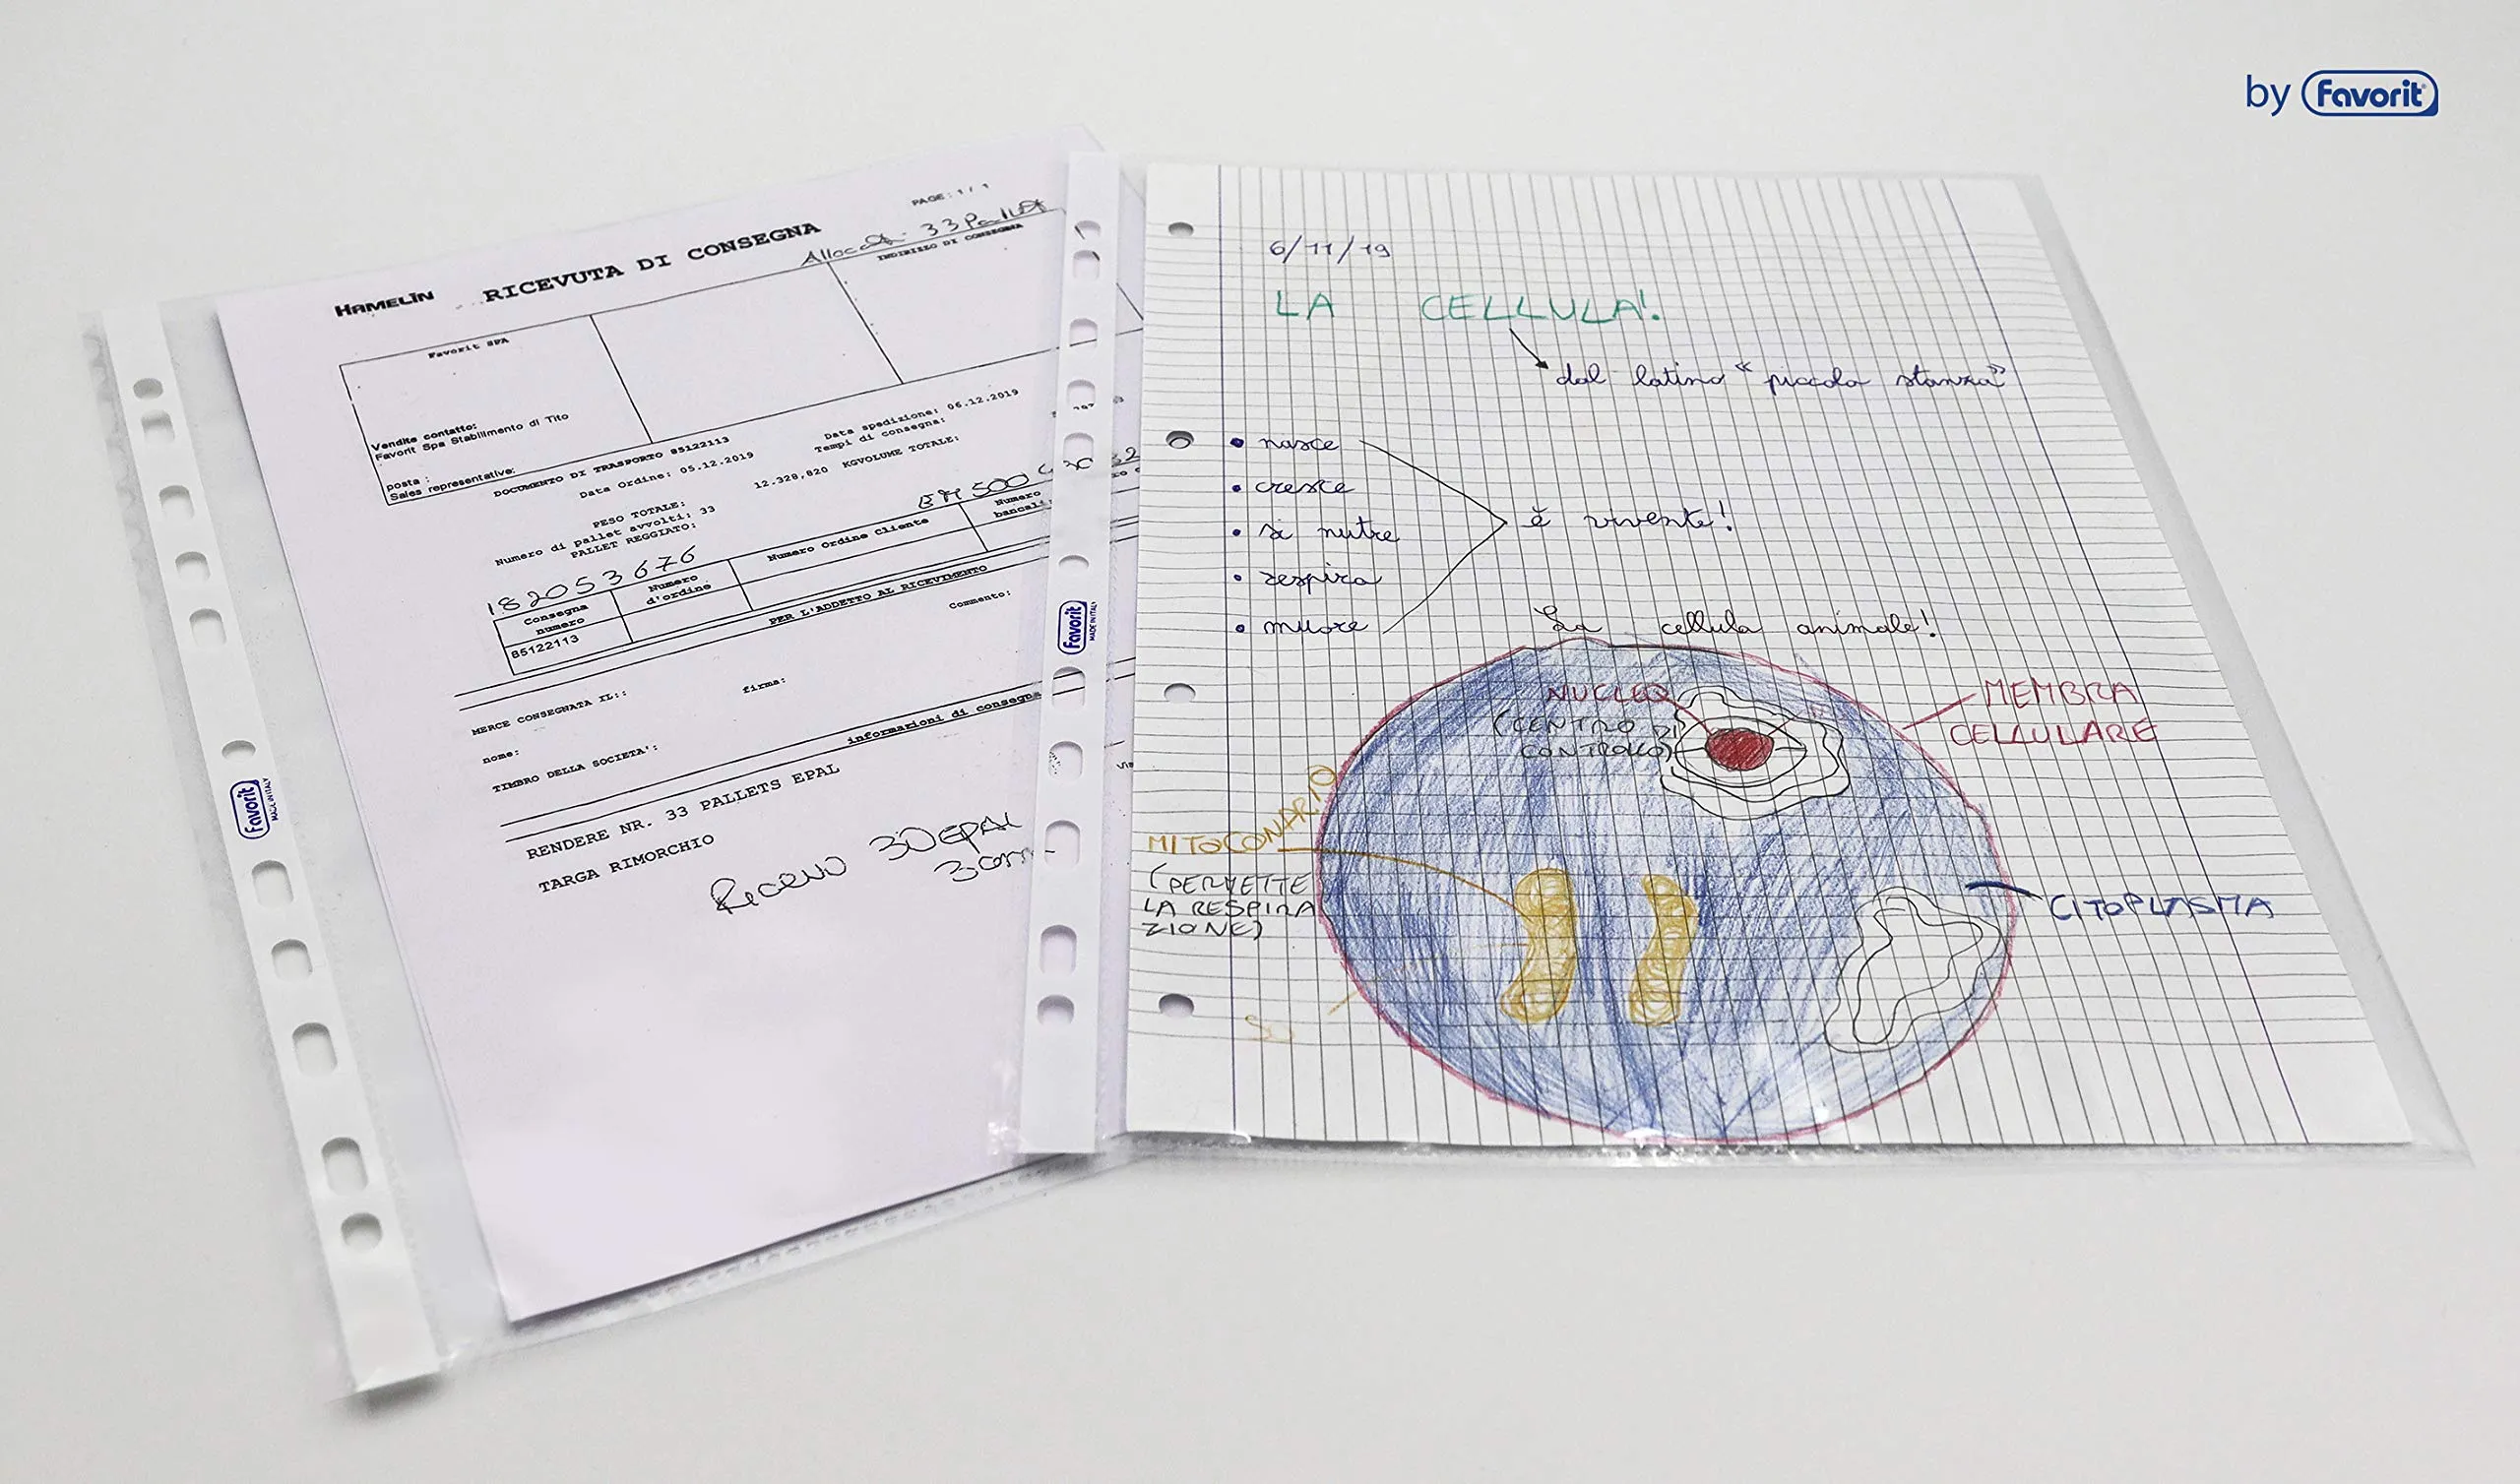 by Favorit
PAGE: 1 / 1
HAMELIN RICEVUTA DI CONSEGNA
33 Pallet
INDIRIZZO DI CONSEGNA
Favorit SPA
Vendite contatto:
Favorit Spa Stabilimento di Tito
posta :
Sales representative:
DOCUMENTO DI TRASPORTO 85122113
Data Ordine: 05.12.2019
Data spedizione: 06.12.2019
Tempi di consegna:
PESO TOTALE:
12.328,820 KGVOLUME TOTALE:
Numero di pallet avvolti: 33
PALLET REGGIATO:
182053676
Consegna numero
Numero d'ordine
Numero Ordine Cliente
Numero bancali
85122113
PER L'ADDETTO AL RICEVIMENTO
Commento:
MERCE CONSEGNATA IL::
firma:
nome:
TIMBRO DELLA SOCIETA':
informazioni di consegna
RENDERE NR. 33 PALLETS EPAL
TARGA RIMORCHIO
30 EPAL
Favorit
MADE IN ITALY
Favorit
MADE IN ITALY
6/11/19
LA CELLULA!
dal latino “ piccola stanza”
• nasce
• cresce
• si nutre
• respira
• muore
è vivente!
La cellula animale!
NUCLEO
(CENTRO DI
CONTROLLO)
MEMBRA
CELLULARE
MITOCONDRIO
(PERMETTE
LA RESPIRA
ZIONE)
CITOPLASMA